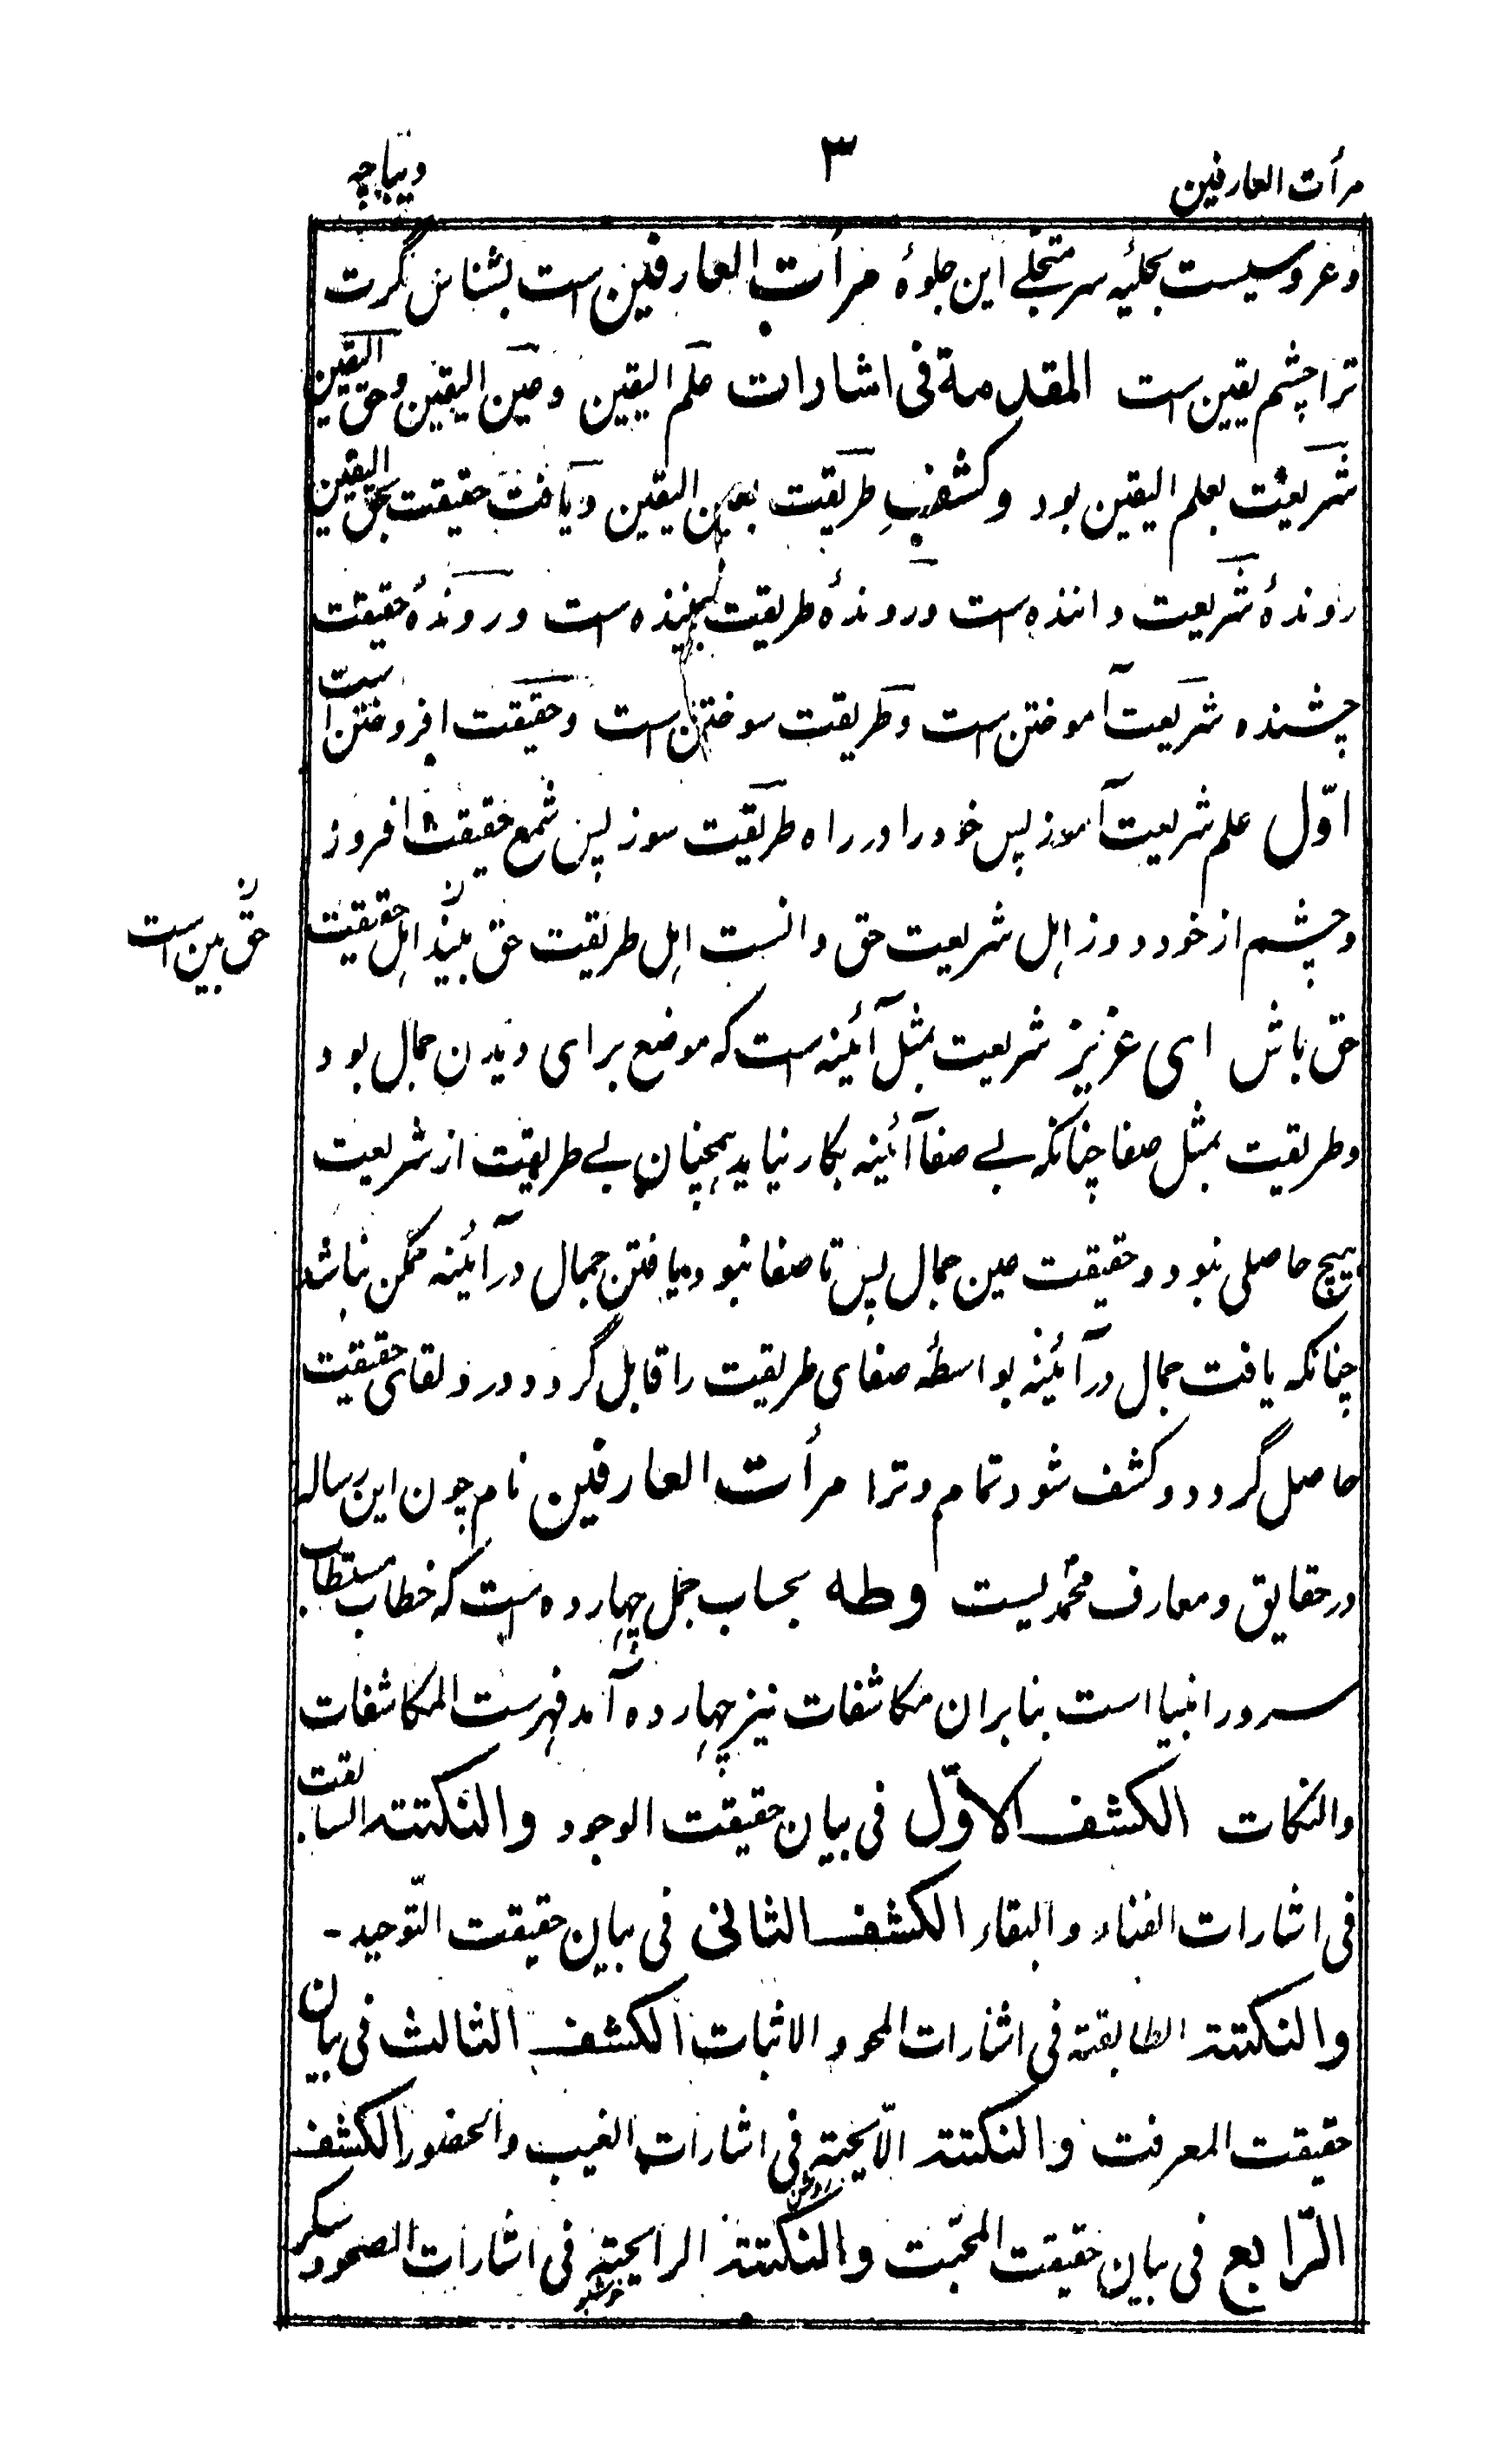 مرأت العارفین ۳ دیباچه
وعروسیست بحلیٔه سر متجلے این جلوهٔ مرأت العارفین است بشناس گرت
ترا چشم یقین است المقدمة فی اشارات علم الیقین وعین الیقین وحق الیقین
شریعت بعلم الیقین بود وکشفِ طریقت بعین الیقین ویافت حقیقت بحق الیقین
روندهٔ شریعت داننده است وروندهٔ طریقت بیننده است وروندهٔ حقیقت
چشنده شریعت آموختن است وطریقت سوختن است وحقیقت افروختن است
اوّل علم شریعت آموز پس خود را در راه طریقت سوز پس شمع حقیقت افروز
وچشم از خود دوز اهل شریعت حق دانست اهل طریقت حق بیند اهل حقیقت
حق بین است
حق باش ای عزیز شریعت بمثل آئینه است که موضع برای دیدن جمال بود
وطریقت بمثل صفا چنانکه بے صفا آئینه بکار نیاید همچنان بے طریقت از شریعت
هیچ حاصلی نبود وحقیقت عین جمال پس تا صفا نبود یافتنِ جمال در آئینه ممکن نباشد
چنانکه یافت جمال در آئینه بواسطهٔ صفای طریقت را قابل گردد ودرو لقای حقیقت
حاصل گردد وکشف شود تمام وترا مرأت العارفین نام چون این رساله
در حقایق ومعارف محمّدیست وطه بحساب جمل چهارده است که خطاب مستطاب
سرور انبیا است بنابران مکاشفات نیز چهارده آمد فهرست المکاشفات
والنکات الکشف الاوّل فی بیان حقیقت الوجود والنکتة السابقت
فی اشارات الفناء والبقاء الکشف الثانی فی بیان حقیقت التّوحید -
والنکتة الطابقته فی اشارات المحو والاثبات الکشف الثالث فی بیان
حقیقت المعرفت والنکتة الّایحته فی اشارات الغیب والحضور الکشف
الرّابع فی بیان حقیقت المحبّت والنکتة الرایحته فی اشارات الصحو وسکر
خوشبو